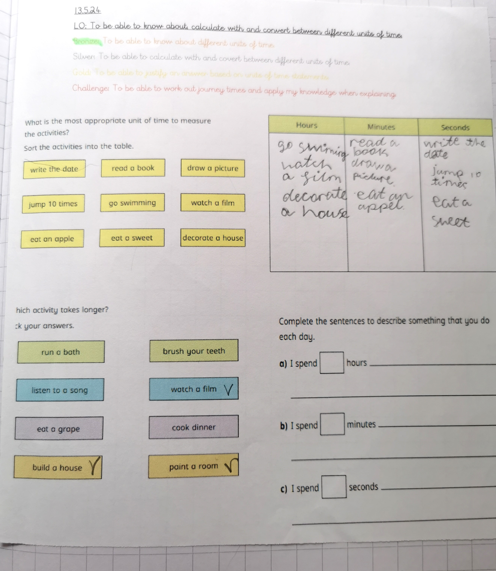 13.5.24
LO: To be able to know about, calculate with and convert between different units of time.
To be able to know about different units of time.
Silver: To be able to calculate with and covert between different units of time.
Challenge: To be able to work out journey times and apply my knowledge when explaining
What is the most appropriate unit of time to measure
the activities?
Sort the activities into the table.
write the date
read a book
draw a picture
jump 10 times
go swimming
watch a film
eat an apple
eat a sweet
decorate a house
Hours
Minutes
Seconds
go swiming
watch
a film
decorate
a house
read a
book
draw a
picture
eat an
appel
write the
date
Jump 10
times
eat a
sweet
hich activity takes longer?
ck your answers.
run a bath
brush your teeth
listen to a song
watch a film
eat a grape
cook dinner
build a house
paint a room
Complete the sentences to describe something that you do
each day.
a) I spend hours
b) I spend minutes
c) I spend seconds